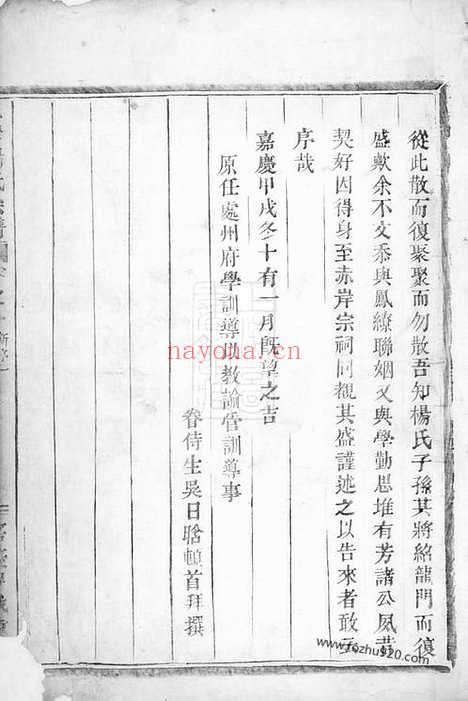 從此散而復聚聚而勿散吾知楊氏子孫其將紹龍門而復
盛歟余不文忝與鳳繚聯姻又與學勤思堆有芳諸公夙昔
契好因得身至赤岸宗祠同觀其盛謹述之以告來者敢云
序哉
嘉慶甲戌冬十有一月旣望之吉
原任處州府學訓導以教諭管訓導事
眷侍生吳日晗頓首拜撰
nayona.cn
www.fozhu920.com